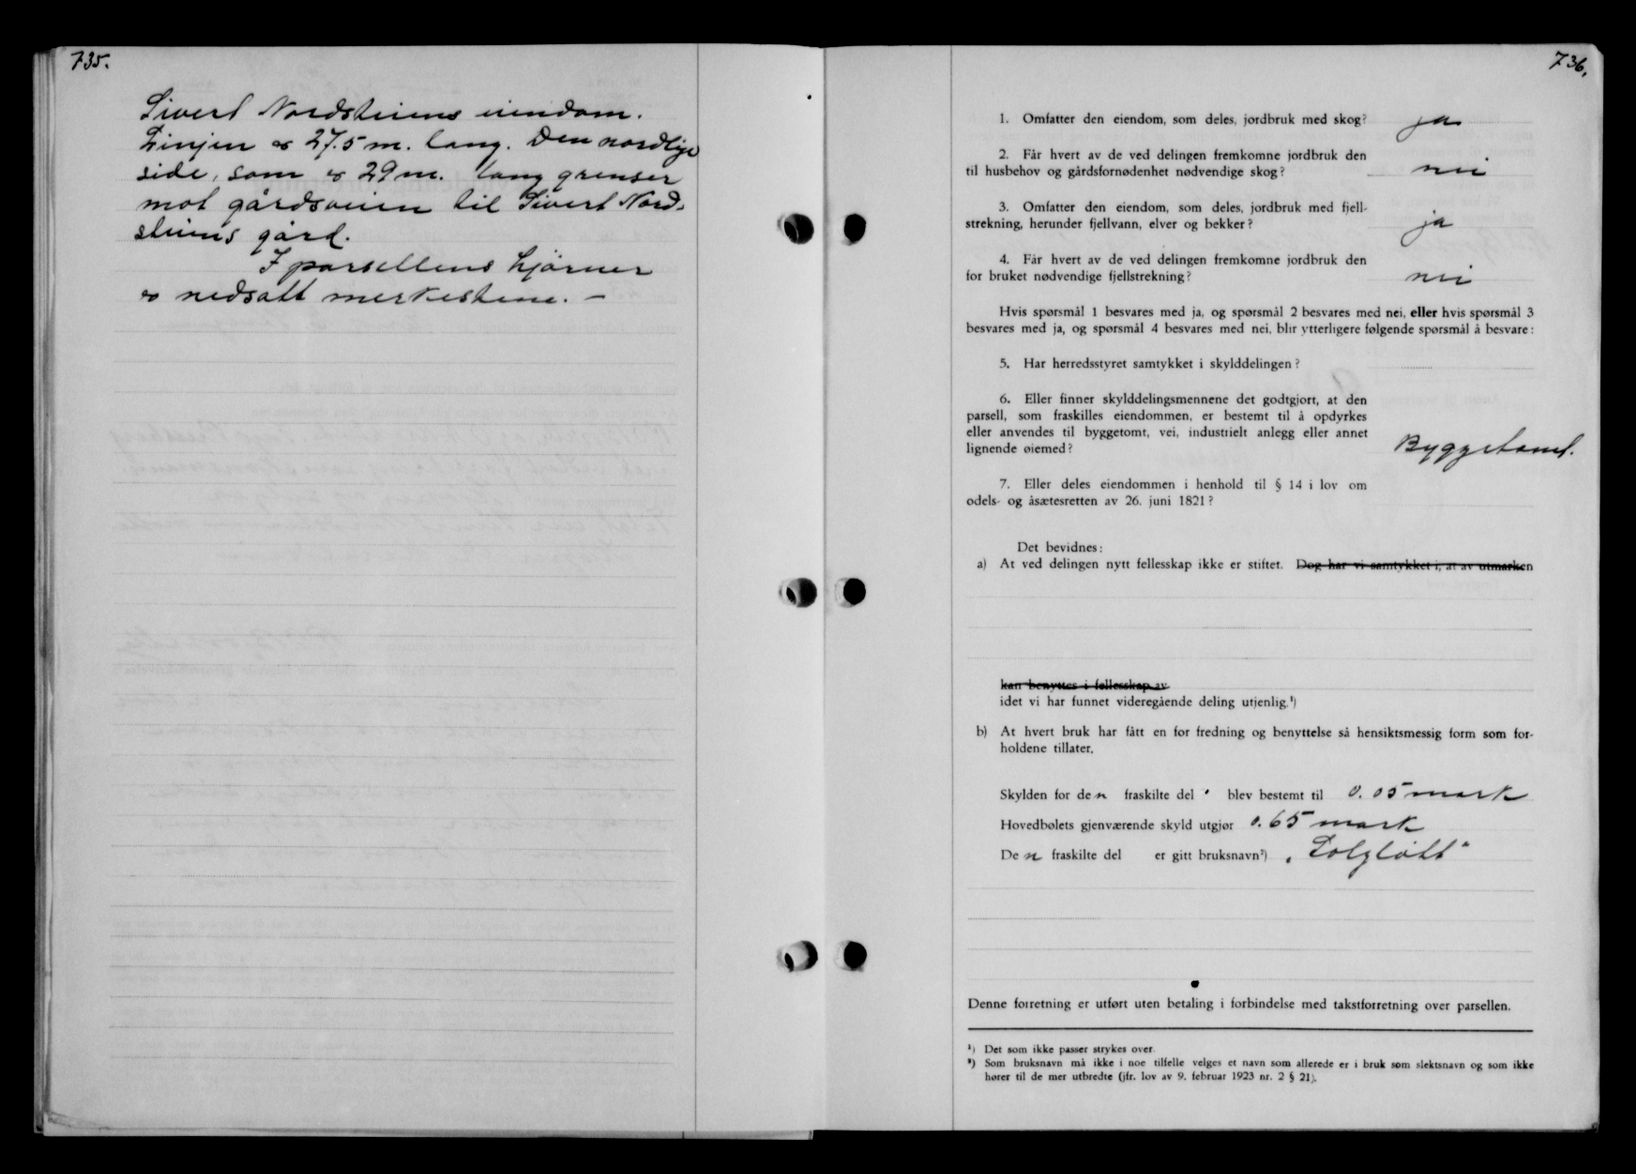 735.
Sivert Nordsteiens eiendom.
Linjen er 27.5 m. lang. Den nordlige
side, som er 29 m. lang grenser
mot gårdsveien til Sivert Nord-
steiens gård.
I parsellens hjørner
er nedsatt merkestene. –
736.
1. Omfatter den eiendom, som deles, jordbruk med skog? ja
2. Får hvert av de ved delingen fremkomne jordbruk den
til husbehov og gårdsfornødenhet nødvendige skog? nei
3. Omfatter den eiendom, som deles, jordbruk med fjell-
strekning, herunder fjellvann, elver og bekker? ja
4. Får hvert av de ved delingen fremkomne jordbruk den
for bruket nødvendige fjellstrekning? nei
Hvis spørsmål 1 besvares med ja, og spørsmål 2 besvares med nei, eller hvis spørsmål 3
besvares med ja, og spørsmål 4 besvares med nei, blir ytterligere følgende spørsmål å besvare:
5. Har herredsstyret samtykket i skylddelingen?
6. Eller finner skylddelingsmennene det godtgjort, at den
parsell, som fraskilles eiendommen, er bestemt til å opdyrkes
eller anvendes til byggetomt, vei, industrielt anlegg eller annet
lignende øiemed? Byggetomt.
7. Eller deles eiendommen i henhold til § 14 i lov om
odels- og åsætesretten av 26. juni 1821?
Det bevidnes:
a) At ved delingen nytt fellesskap ikke er stiftet. Dog har vi samtykket i, at av utmarken
kan benyttes i fellesskap av
idet vi har funnet videregående deling utjenlig.¹)
b) At hvert bruk har fått en for fredning og benyttelse så hensiktsmessig form som for-
holdene tillater.
Skylden for den fraskilte del blev bestemt til 0.05 mark
Hovedbølets gjenværende skyld utgjør 0.65 mark
Den fraskilte del er gitt bruksnavn²) „Solgløtt"
Denne forretning er utført uten betaling i forbindelse med takstforretning over parsellen.
¹) Det som ikke passer strykes over.
²) Som bruksnavn må ikke i noe tilfelle velges et navn som allerede er i bruk som slektsnavn og som ikke
hører til de mer utbredte (jfr. lov av 9. februar 1923 nr. 2 § 21).